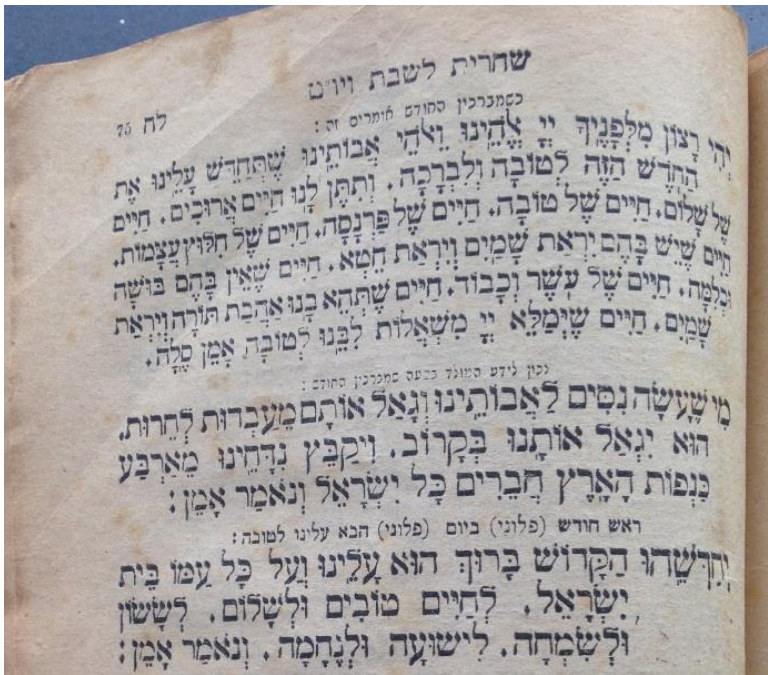 שחרית לשבת ויו"ט
לח 75
כשמברכין החודש אומרים זה:
יְהִי רָצוֹן מִלְּפָנֶיךָ יְיָ אֱלֹהֵינוּ וֵאלֹהֵי אֲבוֹתֵינוּ שֶׁתְּחַדֵּשׁ עָלֵינוּ אֶת
הַחֹדֶשׁ הַזֶּה לְטוֹבָה וְלִבְרָכָה. וְתִתֶּן לָנוּ חַיִּים אֲרוּכִים. חַיִּים
שֶׁל שָׁלוֹם. חַיִּים שֶׁל טוֹבָה. חַיִּים שֶׁל פַּרְנָסָה. חַיִּים שֶׁל חִלּוּץ עֲצָמוֹת.
חַיִּים שֶׁיֵּשׁ בָּהֶם יִרְאַת שָׁמַיִם וְיִרְאַת חֵטְא. חַיִּים שֶׁאֵין בָּהֶם בּוּשָׁה
וּכְלִמָּה. חַיִּים שֶׁל עֹשֶׁר וְכָבוֹד. חַיִּים שֶׁתְּהֵא בָנוּ אַהֲבַת תּוֹרָה וְיִרְאַת
שָׁמַיִם. חַיִּים שֶׁיְּמַלֵּא יְיָ מִשְׁאֲלוֹת לִבֵּנוּ לְטוֹבָה אָמֵן סֶלָה.
נכון לידע המולד בשעה שמברכין החודש:
מִי שֶׁעָשָׂה נִסִּים לַאֲבוֹתֵינוּ וְגָאַל אוֹתָם מֵעַבְדוּת לְחֵרוּת.
הוּא יִגְאַל אוֹתָנוּ בְּקָרוֹב. וִיקַבֵּץ נִדָּחֵינוּ מֵאַרְבַּע
כַּנְפוֹת הָאָרֶץ חֲבֵרִים כָּל יִשְׂרָאֵל וְנֹאמַר אָמֵן:
ראש חודש (פלוני) ביום (פלוני) הבא עלינו לטובה:
יְחַדְּשֵׁהוּ הַקָּדוֹשׁ בָּרוּךְ הוּא עָלֵינוּ וְעַל כָּל עַמּוֹ בֵּית
יִשְׂרָאֵל. לְחַיִּים טוֹבִים וּלְשָׁלוֹם. לְשָׂשׂוֹן
וּלְשִׂמְחָה. לִישׁוּעָה וּלְנֶחָמָה. וְנֹאמַר אָמֵן: